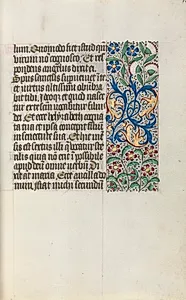 lum. Quomodo fiet istud qm
virum non cognosco. Et res
pondens angelus dixit ei.
Spus sanctus superveniet in te
et virtus altissimi obumbra
bit tibi. Ideoq et quod nasce
tur ex te sanctum vocabitur filius
dei. Et ecce helyzabeth cogna
ta tua et ipsa concepit filium
in senectute sua. Et hic men
sis est sextus illi q vocatur ste
rilis quia non erit impossibile
apud deum omne verbum. Di
xit at maria. Ecce ancilla do
mini fiat michi secundum